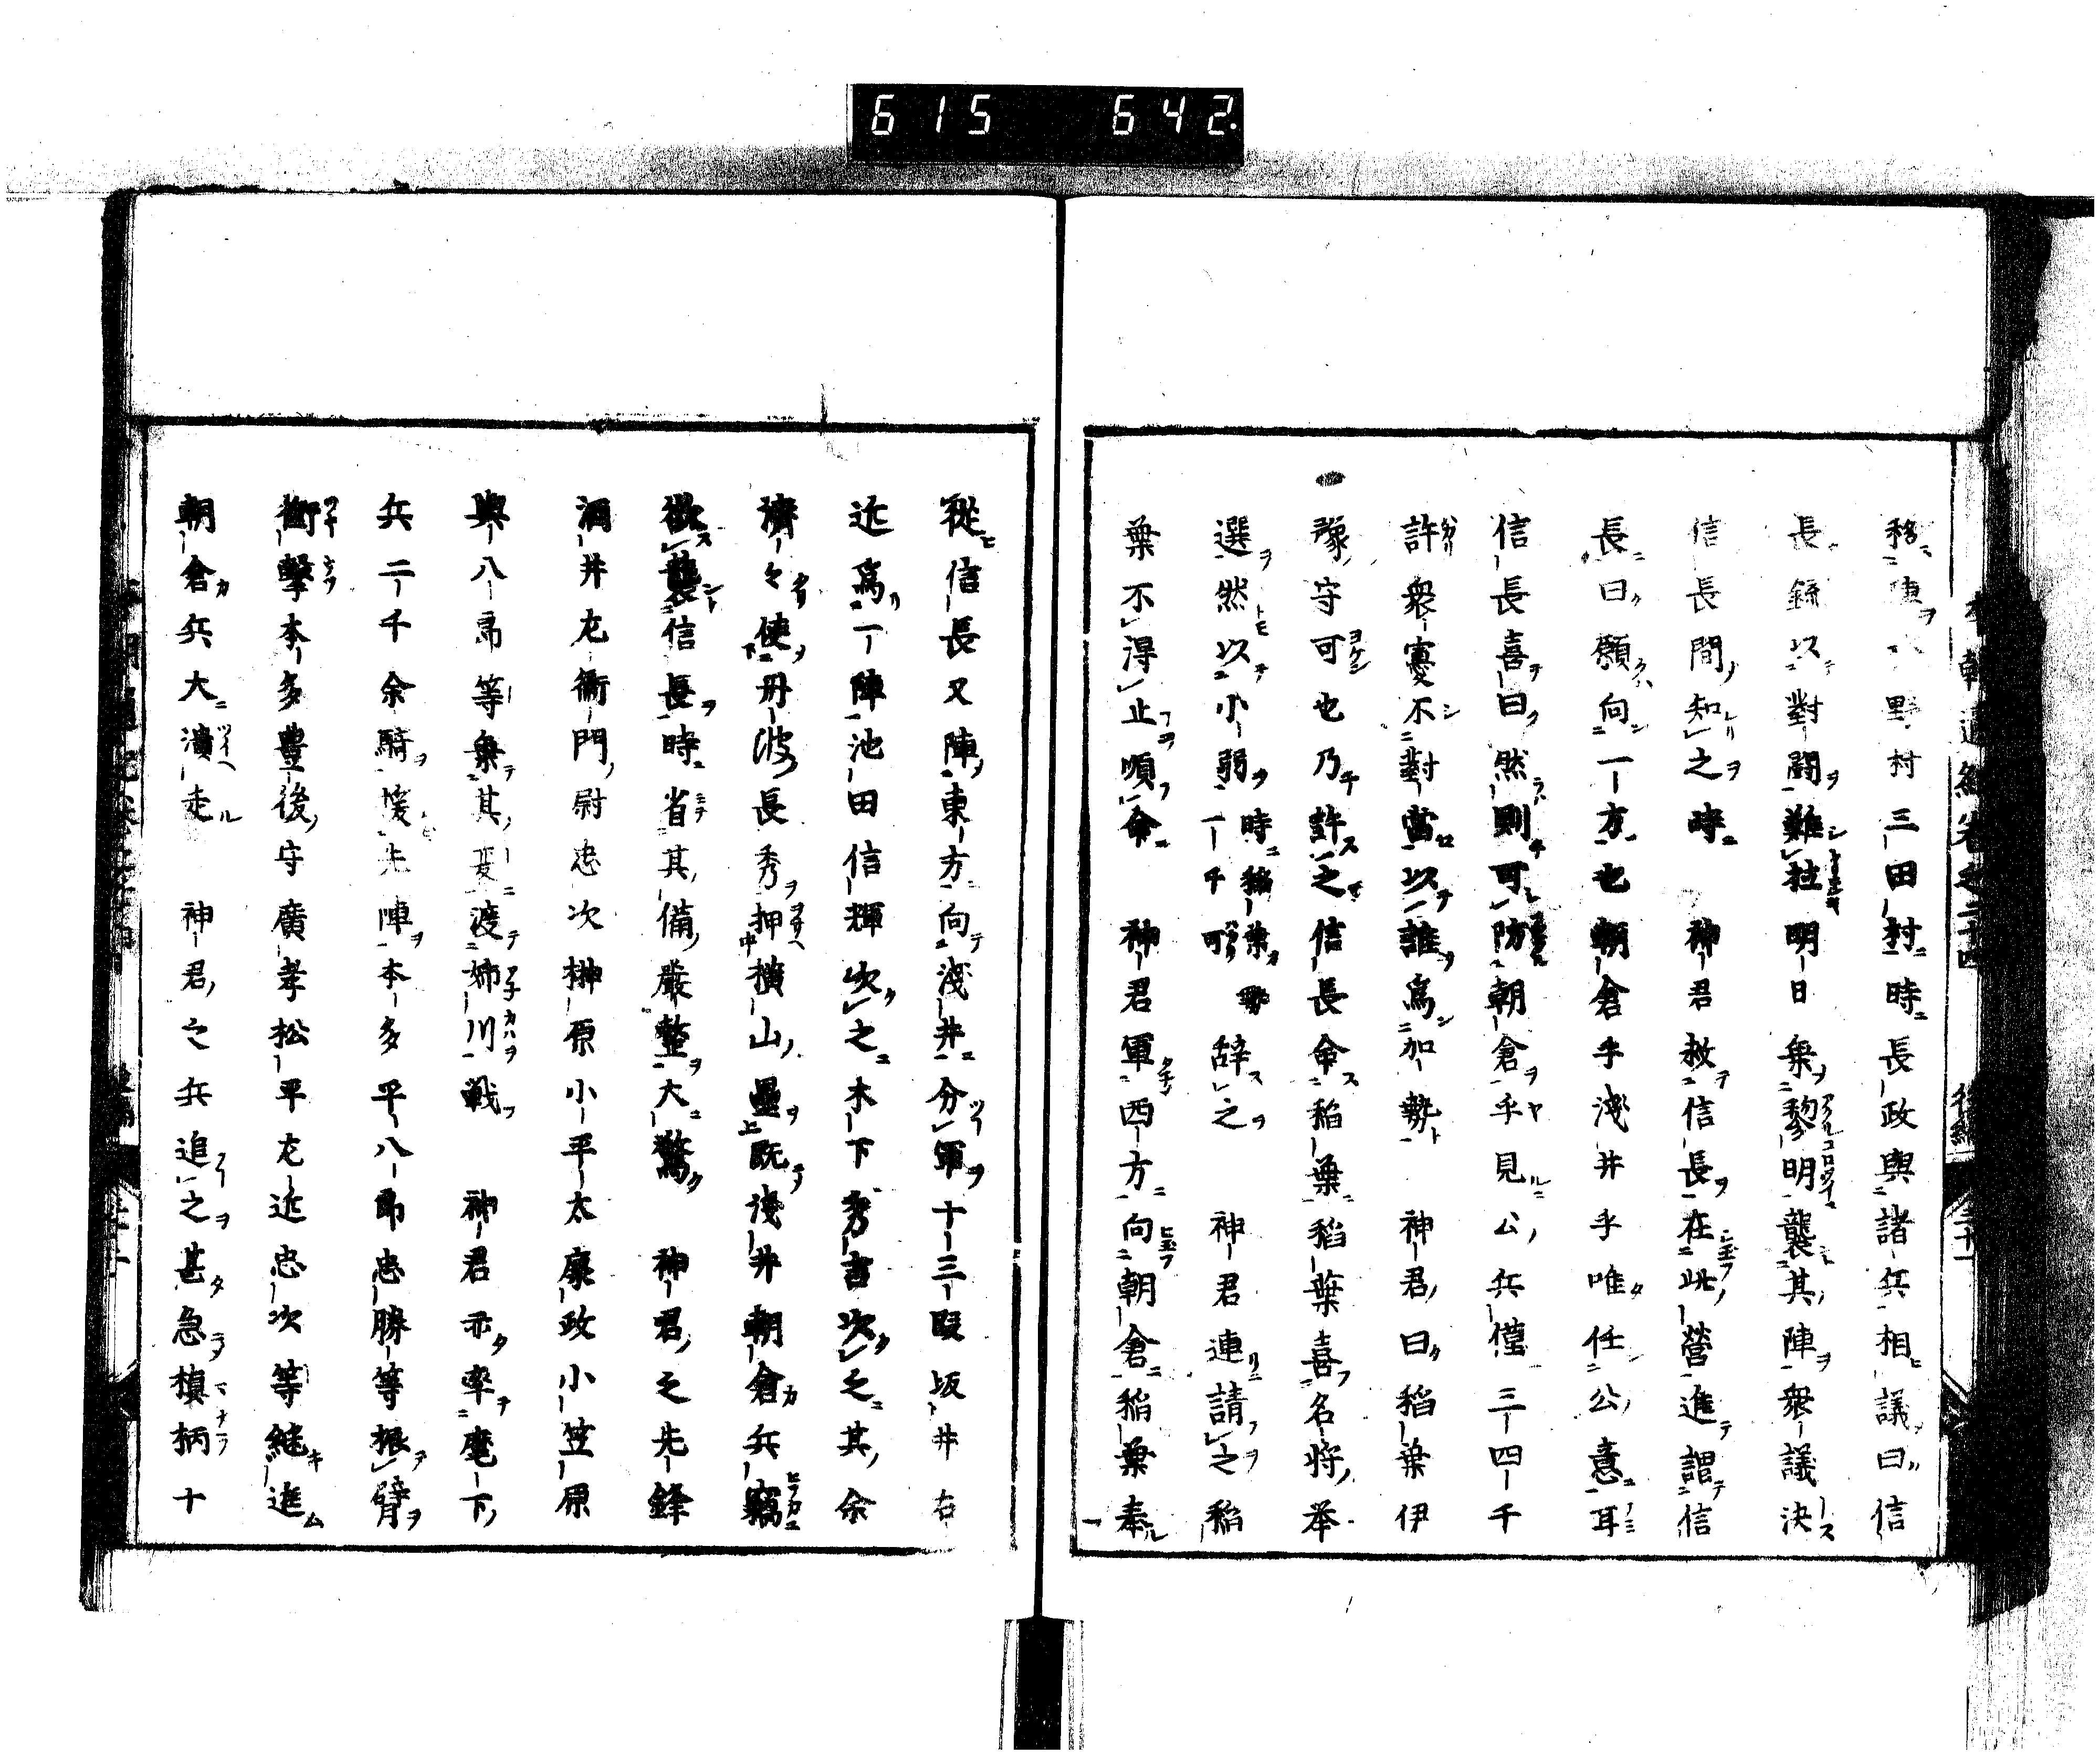 615 642.
移陣 野村三田村時長政與諸兵相議曰信
長錄以對鬪難拉明日乗黎明襲其陣衆議決
信長間知之時 神君赦信長在此營進謂信
長曰願向一方也朝倉乎淺井乎唯任公意耳
信長喜曰然則可防朝倉乎見公兵僅三四千
許衆寡不對當以誰爲加勢 神君曰稻葉伊
豫守可也乃許之信長命稻葉稻葉喜名将擧
選然以小弱一千 時稻葉 辞之 神君連請之稻
葉不得止順命 神君軍西方向朝倉稻葉奉
從信長又陣東方向淺井分軍十三段坂井右
近爲一陣池田信輝次之木下秀吉次之其余
濟々使丹波長秀押横山壘既淺井朝倉兵竊
欲襲信長時省其備嚴整大驚 神君之先鋒
酒井左衛門尉忠次榊原小平太康政小笠原
與八郎等乗其 渡姉川戦 神君亦率麾下
兵二千余騎援先陣本多平八郎忠勝等振臂
衝擊本多豊後守廣孝松平左近忠次等継進
朝倉兵大潰走 神君之兵追之甚急槙柄十